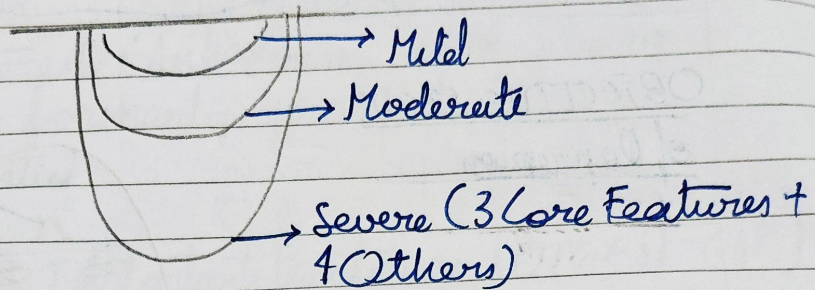 Mild
Moderate
Severe (3 Core Features +
4 Others)